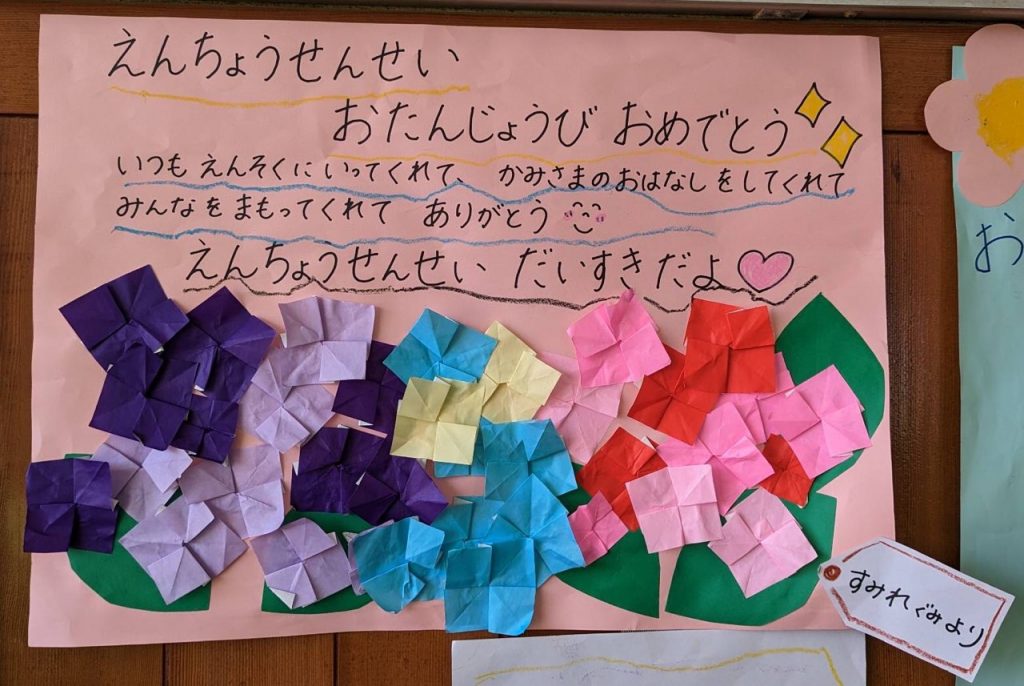 えんちょうせんせい
おたんじょうび おめでとう
いつも えんそくに いってくれて、 かみさまのおはなしをしてくれて
みんなを まもってくれて ありがとう
えんちょうせんせい だいすきだよ
すみれぐみより
お